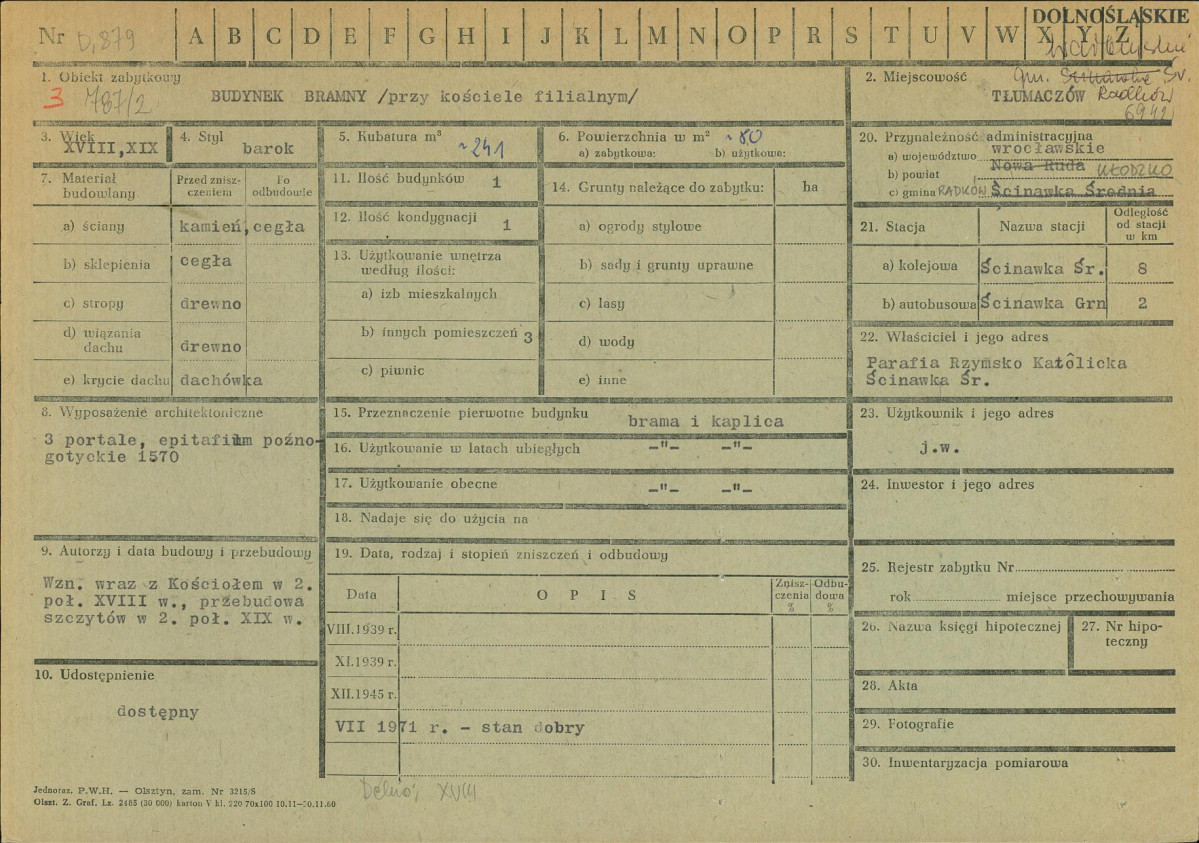 Nr D,879 A B C D E F G H I J K L M N O P R S T U V W X Y Z DOLNOŚLĄSKIE
1. Obiekt zabytkowy
3 787/2
BUDYNEK BRAMNY /przy kościele filialnym/
2. Miejscowość gm.
TŁUMACZÓW Radków
3. Wiek
XVIII, XIX
4. Styl
barok
5. Kubatura m³
~241
6. Powierzchnia w m² ~80
a) zabytkowa: b) użytkowa:
20. Przynależność administracyjna
a) województwo wrocławskie
b) powiat Nowa Ruda KŁODZKO
c) gmina RADKÓW Ścinawka Średnia
7. Materiał
budowlany
Przed znisz-
czeniem
Po
odbudowie
a) ściany kamień, cegła
b) sklepienia cegła
c) stropy drewno
d) wiązania
dachu drewno
e) krycie dachu dachówka
11. Ilość budynków 1
12. Ilość kondygnacji 1
13. Użytkowanie wnętrza
według ilości:
a) izb mieszkalnych
b) innych pomieszczeń 3
c) piwnic
14. Grunty należące do zabytku: ha
a) ogrody stylowe
b) sady i grunty uprawne
c) lasy
d) wody
e) inne
21. Stacja Nazwa stacji Odległość
od stacji
w km
a) kolejowa Ścinawka Śr. 8
b) autobusowa Ścinawka Grn 2
22. Właściciel i jego adres
Parafia Rzymsko Katolicka
Ścinawka Śr.
8. Wyposażenie architektoniczne
3 portale, epitafium poźno-
gotyckie 1570
15. Przeznaczenie pierwotne budynku brama i kaplica
16. Użytkowanie w latach ubiegłych –"– –"–
17. Użytkowanie obecne –"– –"–
18. Nadaje się do użycia na
23. Użytkownik i jego adres
j.w.
24. Inwestor i jego adres
9. Autorzy i data budowy i przebudowy
Wzn. wraz z Kościołem w 2.
poł. XVIII w., przebudowa
szczytów w 2. poł. XIX w.
10. Udostępnienie
dostępny
19. Data, rodzaj i stopień zniszczeń i odbudowy
Data O P I S Znisz-
czenia
% Odbu-
dowa
%
VIII.1939 r.
XI.1939 r.
XII.1945 r.
VII 1971 r. - stan dobry
25. Rejestr zabytku Nr
rok miejsce przechowywania
26. Nazwa księgi hipotecznej
27. Nr hipo-
teczny
28. Akta
29. Fotografie
30. Inwentaryzacja pomiarowa
Jednoraz. P.W.H. — Olsztyn, zam. Nr 3215/S
Olszt. Z. Graf. Lz. 2485 (30 000) karton V kl. 220 70x100 10.11—30.11.60
XVIII